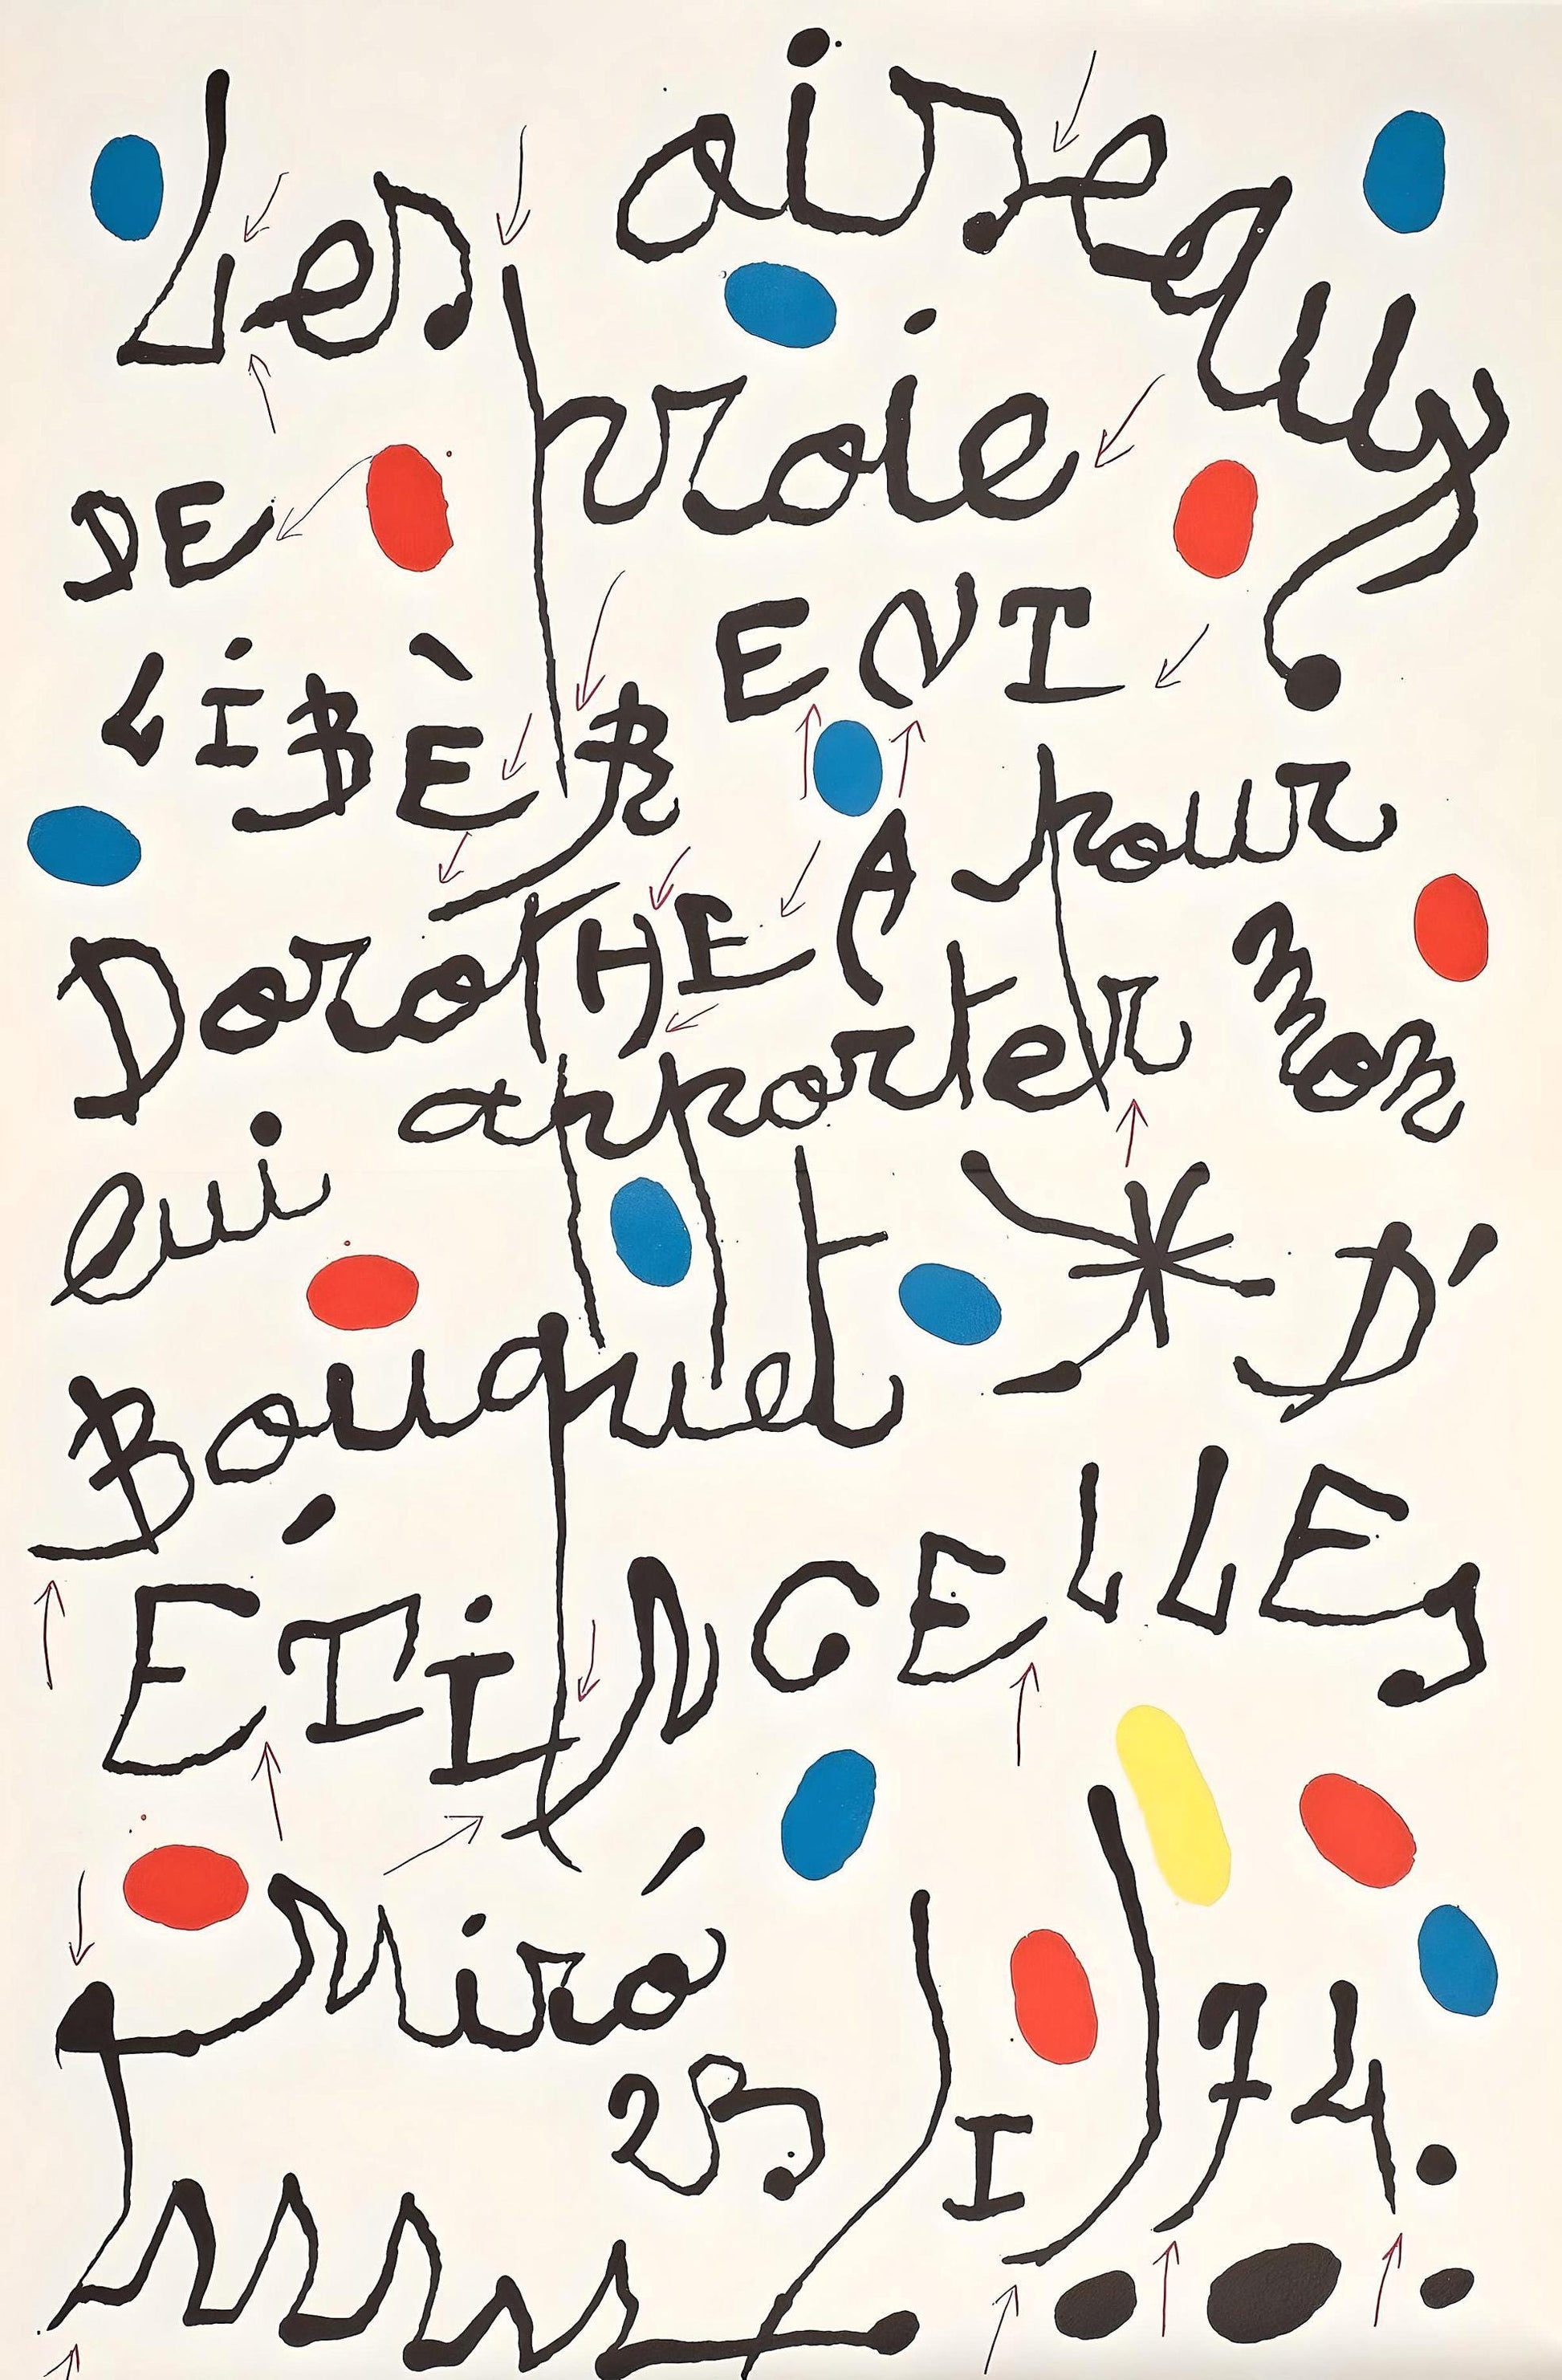 Les oiseaux
DE proie
LiBÈRENT
DoroTHEA pour
lui apporter mon
Bouquet D'
ÉTiNCELLEs
Miró
25/I/74.